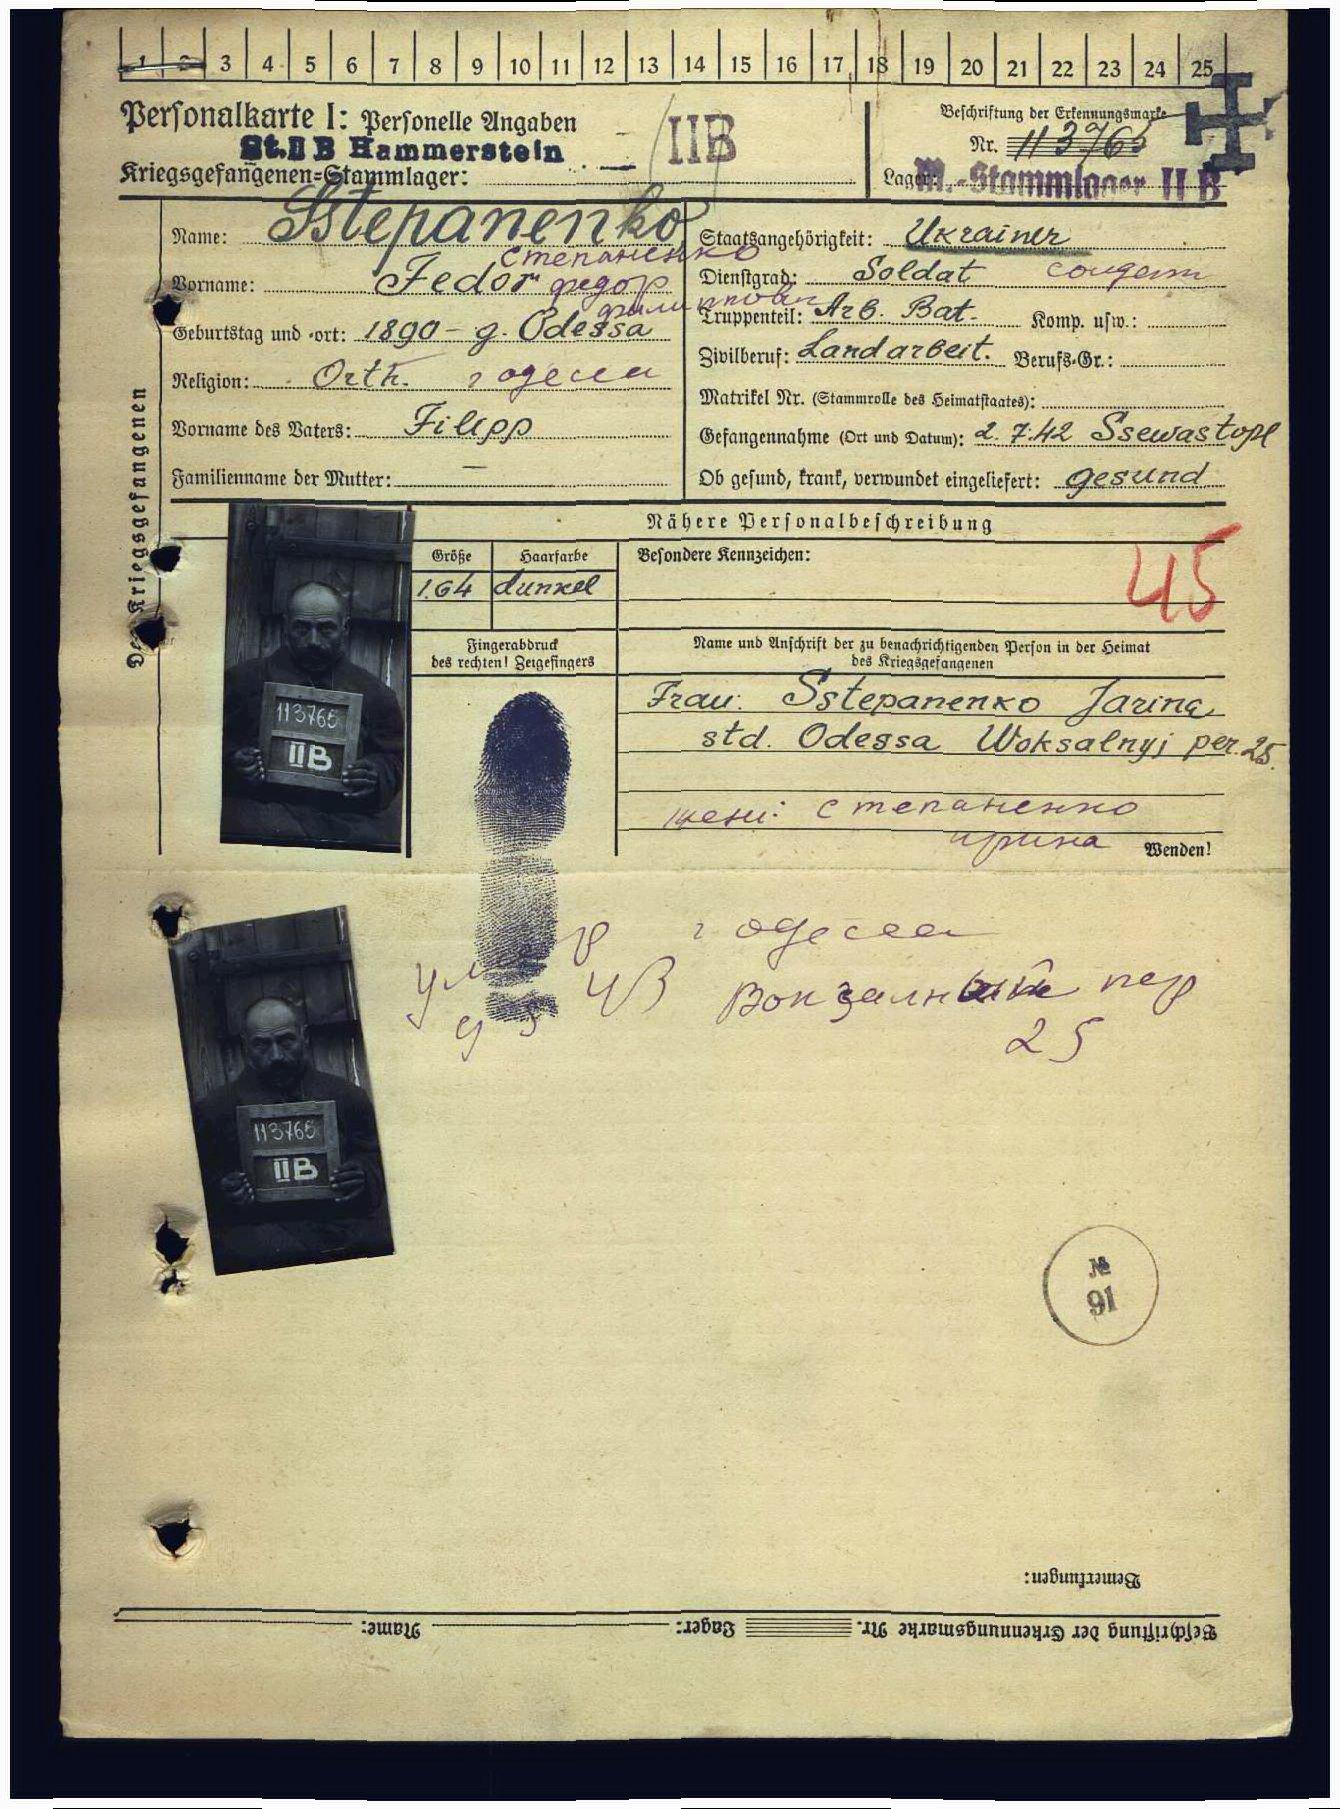 1 2 3 4 5 6 7 8 9 10 11 12 13 14 15 16 17 18 19 20 21 22 23 24 25
Personalkarte I: Personelle Angaben
St.II B Hammerstein
Kriegsgefangenen=Stammlager:
IIB
Beschriftung der Erkennungsmarke
Nr. 113765
Lager: M.-Stammlager II B
Des Kriegsgefangenen
Name: Sstepanenko
степаненко
Vorname: Fedor федор
филиппович
Geburtstag und -ort: 1890 - g. Odessa
Religion: Orth. г одесса
Vorname des Vaters: Filipp
Familienname der Mutter: —
Staatsangehörigkeit: Ukrainer
Dienstgrad: Soldat солдат
Truppenteil: Arb. Bat. Komp. usw.:
Zivilberuf: Landarbeit. Berufs-Gr.:
Matrikel Nr. (Stammrolle des Heimatstaates):
Gefangennahme (Ort und Datum): 2.7.42 Ssewastopl
Ob gesund, krank, verwundet eingeliefert: gesund
Nähere Personalbeschreibung
Größe Haarfarbe
1.64 dunkel
Besondere Kennzeichen:
45
Fingerabdruck
des rechten! Zeigefingers
Name und Anschrift der zu benachrichtigenden Person in der Heimat
des Kriegsgefangenen
Frau: Sstepanenko Jarina
std. Odessa Woksalnyj per. 25.
жени: степаненко
ирина
Wenden!
113765
IIB
г одесса
умер
4 3 43
Вокзалный пер
25
113765
IIB
№
91
Bemerkungen:
Beschriftung der Erkennungsmarke Nr. Lager: Name: